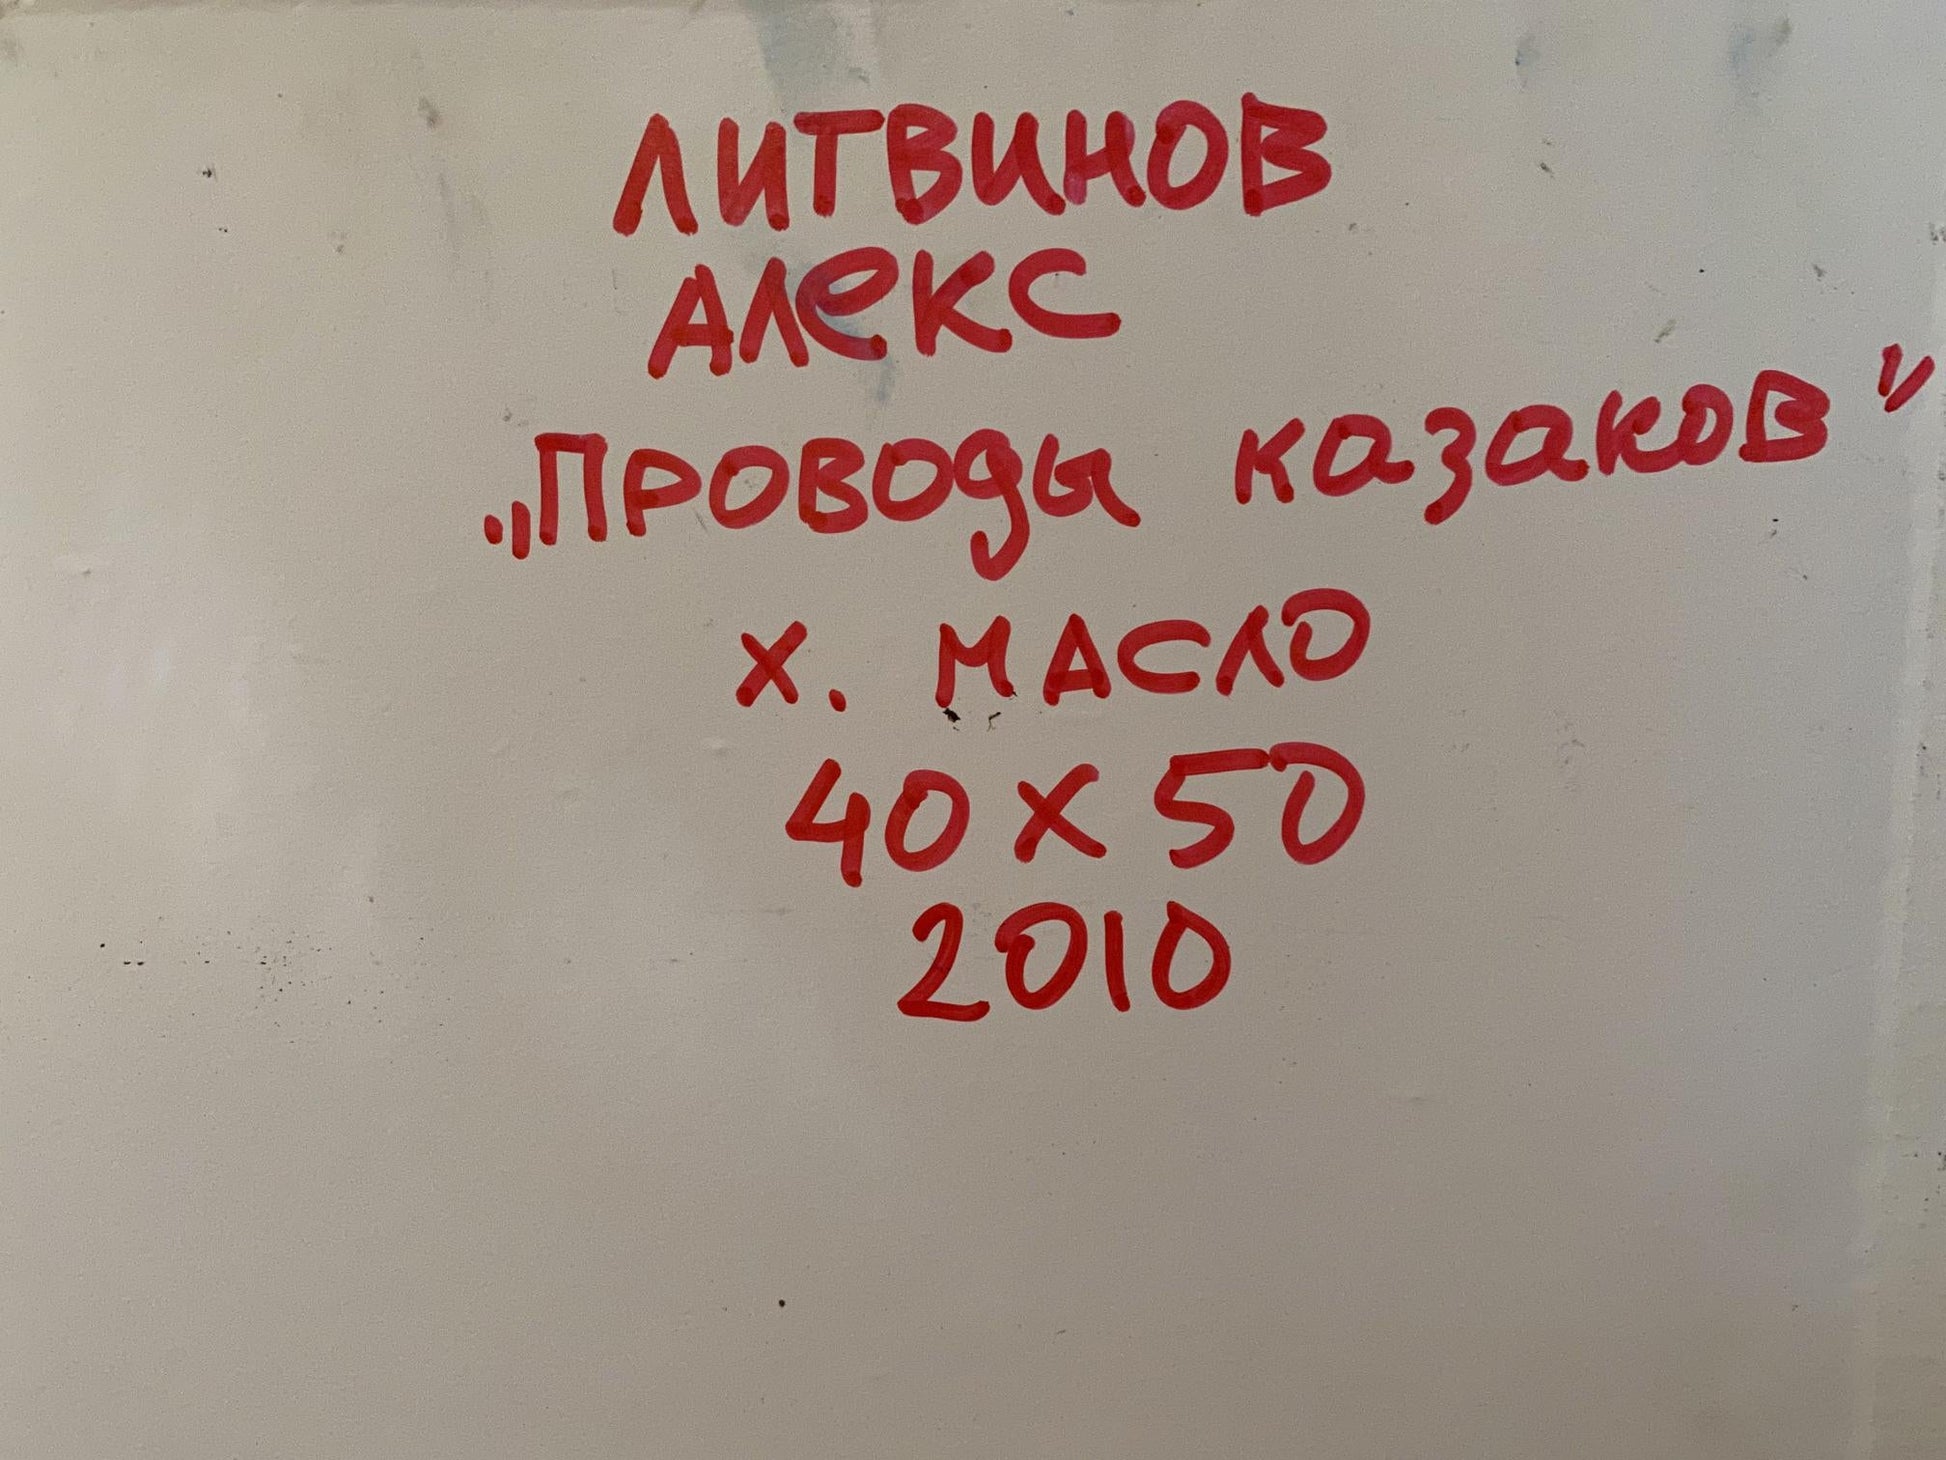 ЛИТВИНОВ
АЛЕКС
„Проводы казаков"
х. МАСЛО
40 х 50
2010